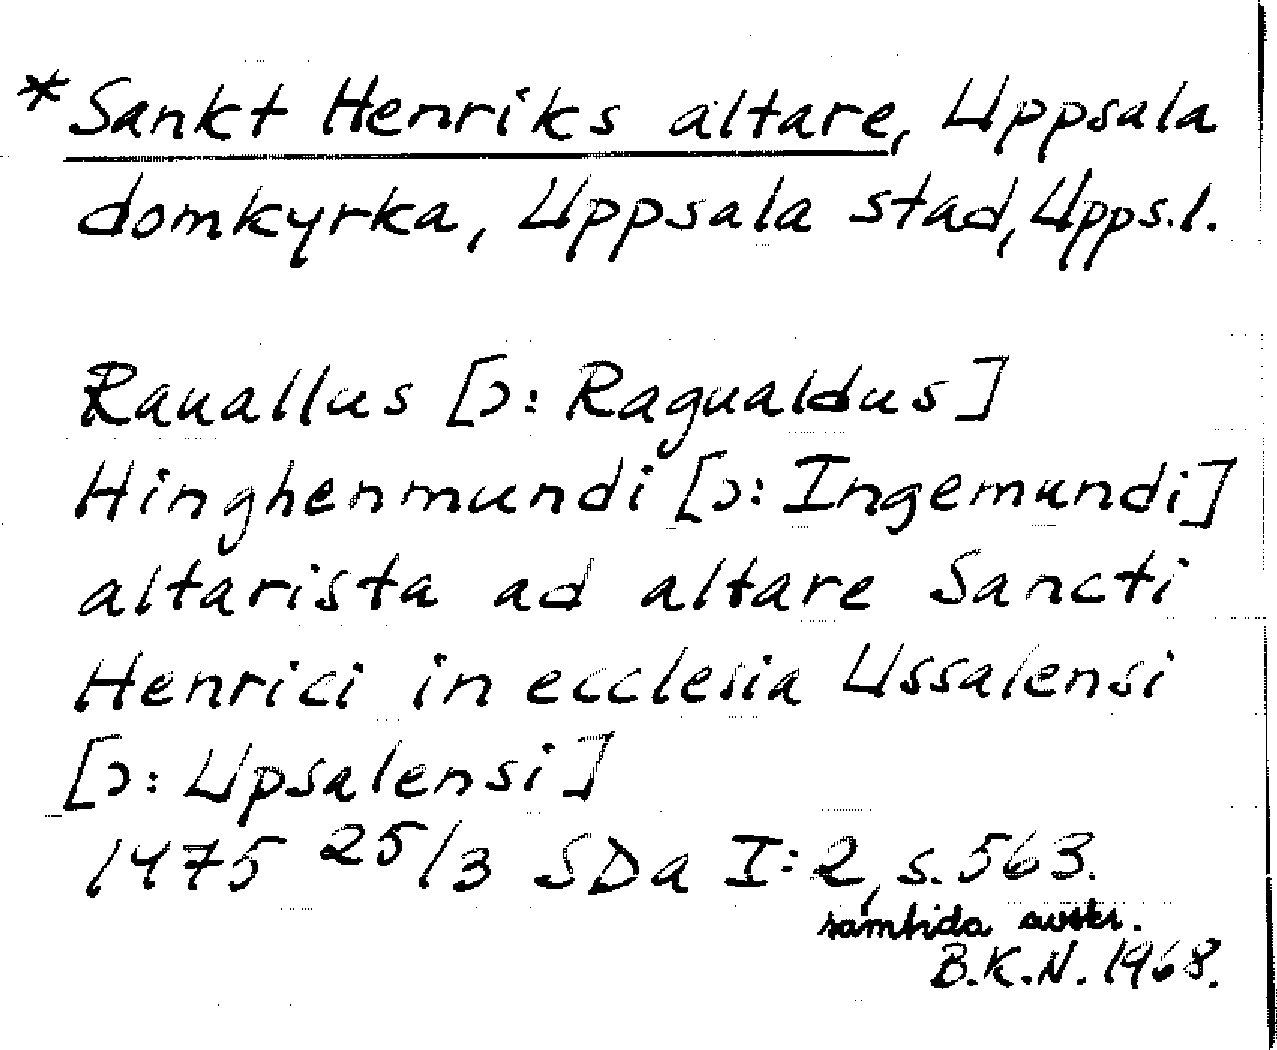 *Sankt Henriks altare, Uppsala
domkyrka, Uppsala stad, Upps.l.
Rauallus [ɔ: Ragualdus]
Hinghenmundi [ɔ: Ingemundi]
altarista ad altare Sancti
Henrici in ecclesia Ussalensi
[ɔ: Upsalensi]
1475 25/3 SDa I:2, s. 563.
samtida avskr.
B.K.N. 1968.